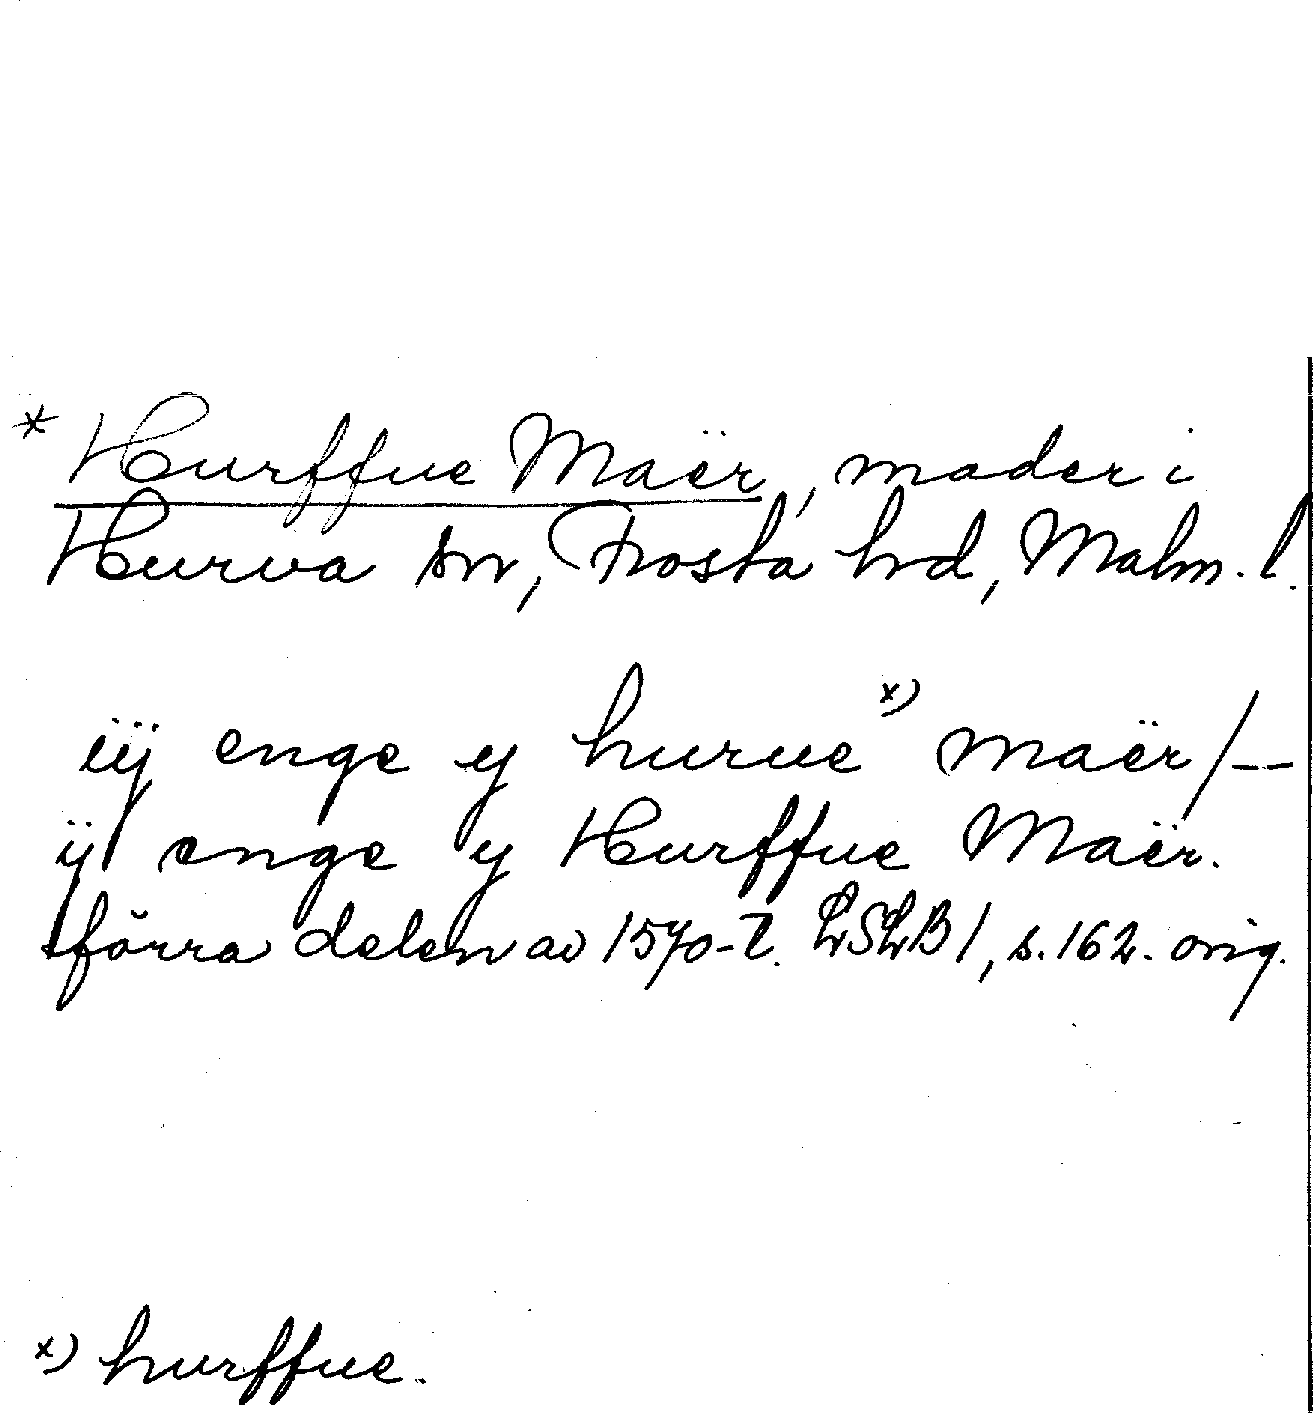 * Hurffue Maër, mader i
Hurva sn, Frosta hd, Malm. l.
iij enge y hurue x) maër/--
ij enge y Hurffue Maër.
förra delen av 1570-t. LSLB 1, s. 162. orig.
x) hurffue.